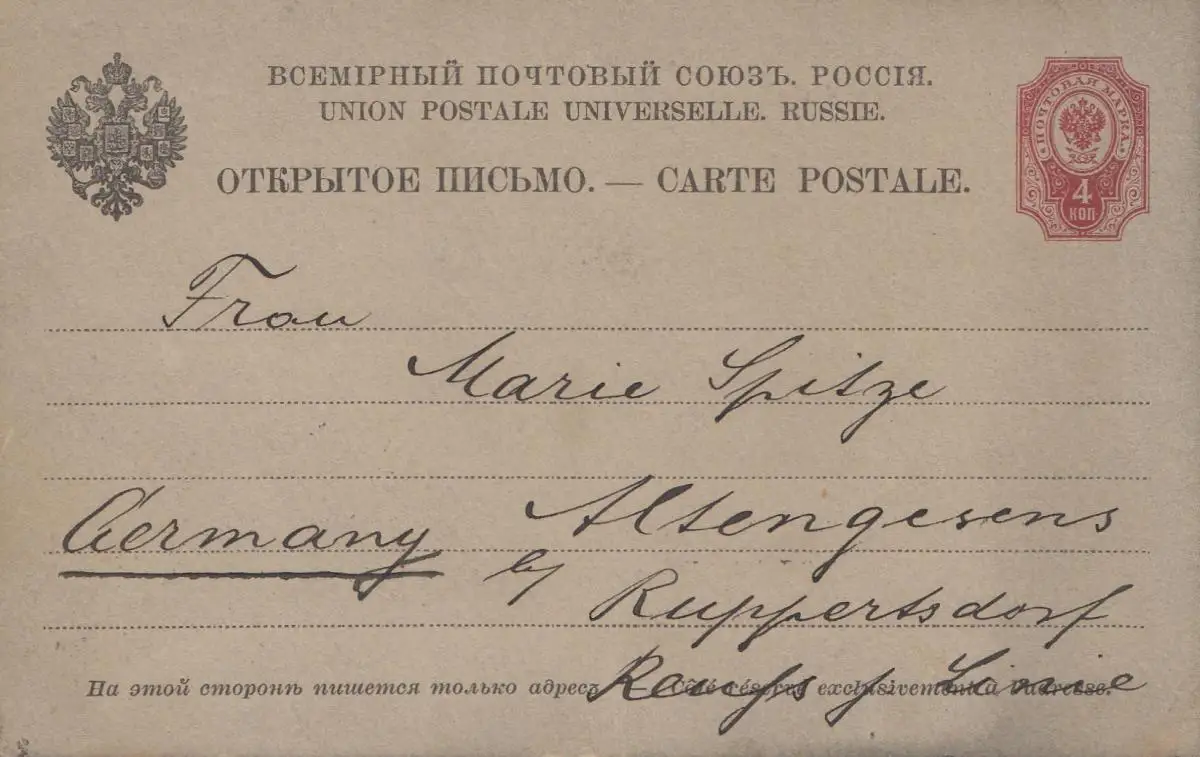 ВСЕМІРНЫЙ ПОЧТОВЫЙ СОЮЗЪ. РОССІЯ.
UNION POSTALE UNIVERSELLE. RUSSIE.
ОТКРЫТОЕ ПИСЬМО. — CARTE POSTALE.
ПОЧТОВАЯ МАРКА
4
КОП.
Frau
Marie Spitze
Germany
Altengesens
by Ruppertsdorf
Reuss j Linie
На этой сторонѣ пишется только адресъ — Côté réservé exclusivement à l'adresse.